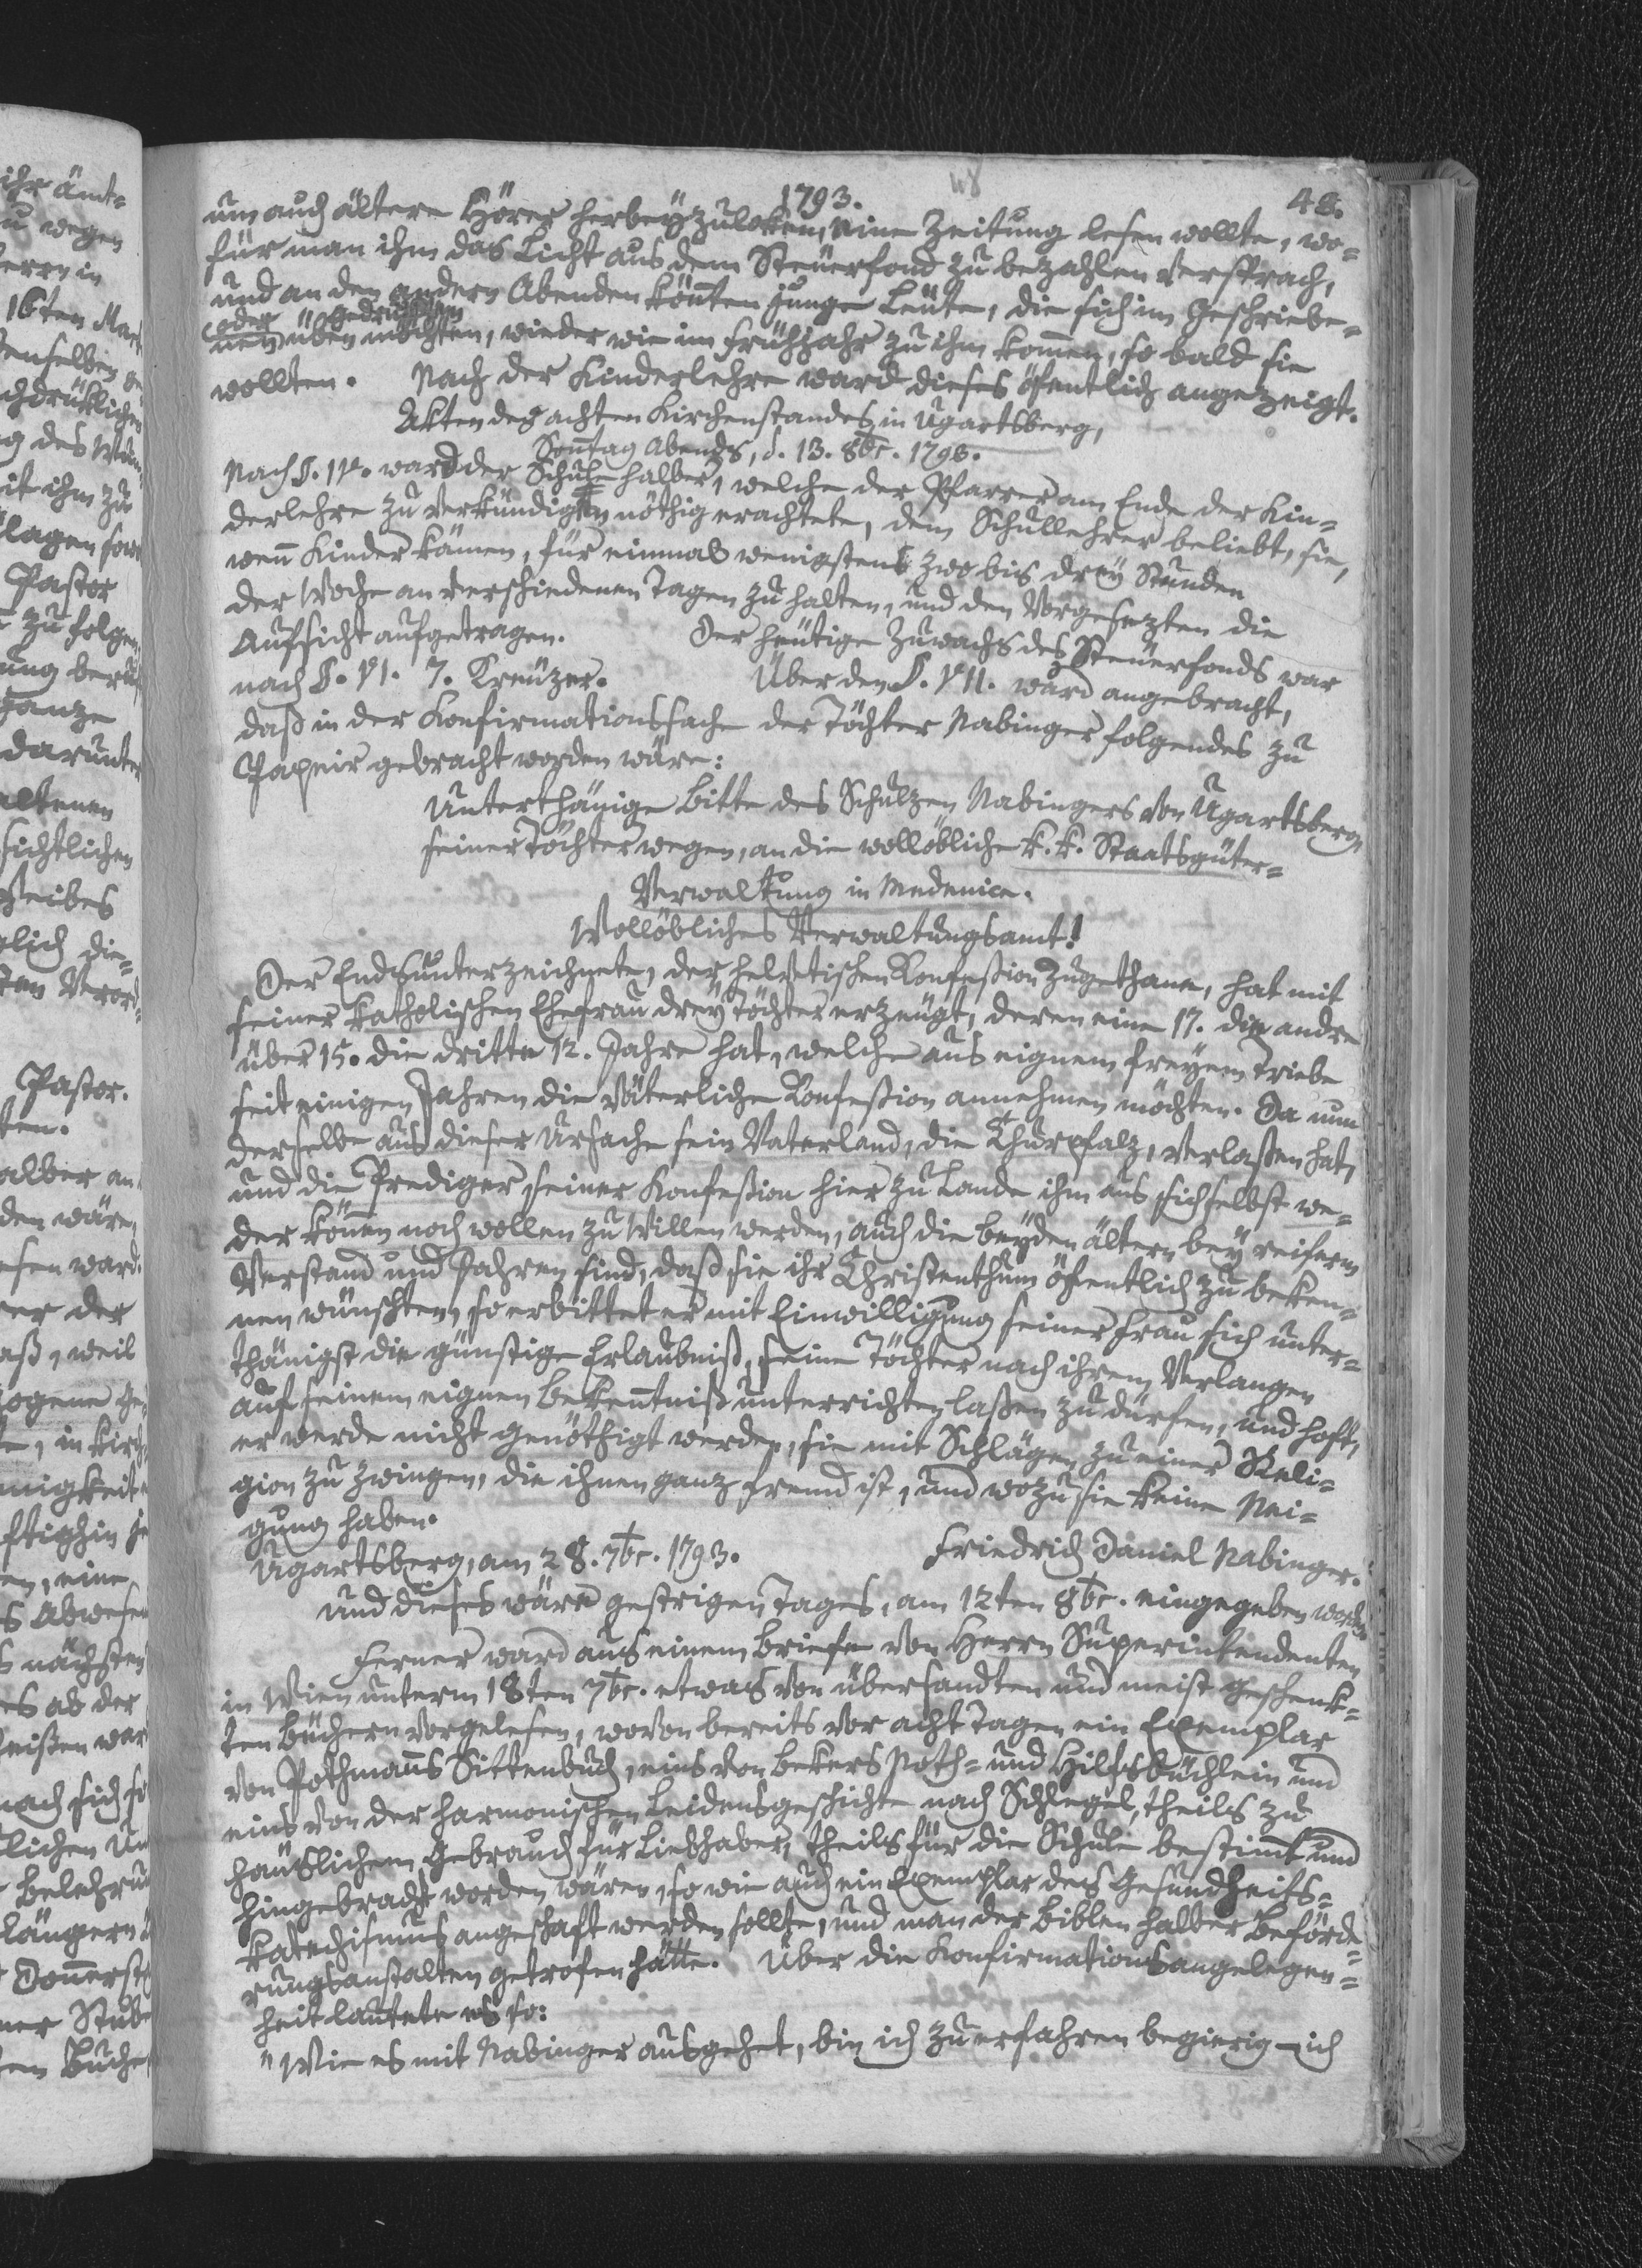 48
1793.
48.
um auch ältere Hörer herbeyzuloken, eine Zeitung lesen wollte, wo=
für man ihm das Licht aus dem Steuerfond zu bezahlen versprach,
und an den andern Abenden könten junge Leute, die sich im Geschriebe=
oder gedrukten
nen üben möchten, wieder wie im Frühjahr zu ihm komen, so bald sie
wollten. Nach der Kinderlehre ward dieses öfentlich angezeigt.
Akten des achten Kirchenstandes in Ugartsberg,
Sontag Abends, d. 13. 8br. 1793.
Nach §. IV. ward der Schule halber, welche der Pfarrer am Ende der Kin=
derlehre zu verkündigen nöthig erachtete, dem Schullehrer beliebt, sie,
wen Kinder kämen, für einmal wenigstens zwo bis drey Stunden
der Woche an verschiedenen Tagen zu halten, und den Vorgesezten die
Aufsicht aufgetragen. Der heutige Zuwachs des Steuerfonds war
nach §. VI. 7. Kreuzer. Über den §. VII. ward angebracht,
daß in der Konfirmationssache der Töchter Nabinger folgendes zu
Papeir gebracht worden wäre:
Unterthänige Bitte des Schulzen Nabingers von Ugartsberg,
seiner Töchter wegen, an die wollöbliche k. k. Staatsgüter=
Verwaltung in Medenice.
Wollöbliches Verwaltungsamt!
Der Endsunterzeichnete, der helvetischen Konfeßion zugethane, hat mit
seiner katholischen Ehefrau drey Töchter erzeugt, deren eine 17. die andre
über 15. die dritte 12. Jahre hat, welche aus eignem freyem Triebe
seit einigen Jahren die väterliche Konfeßion annehmen möchten. Da nun
derselbe aus dieser Ursache sein Vaterland, die Churpfalz, verlaßen hat,
und die Prediger seiner Konfeßion hier zu Lande ihm aus sich selbst we=
der könen noch wollen zu Willen werden, auch die beyden ältern bey reiferm
Verstand und Jahren sind, daß sie ihr Christenthum öfentlich zu beken=
nen wünschten, so erbittet er mit Einwilligung seiner Frau sich unter=
thänigst die günstige Erlaubniß, seine Töchter nach ihrem Verlangen
auf seinem eignen Bekentniß unterrichten laßen zu dürfen, und hoft,
er werde nicht genöthigt werden, sie mit Schlägen zu einer Reli=
gion zu zwingen, die ihnen ganz fremd ist, und wozu sie keine Nei=
gung haben.
Ugartsberg, am 28. 7br. 1793. Friedrich Daniel Nabinger.
Und dieses wäre gestrigen Tages, am 12ten 8br. eingegeben worden.
Ferner ward aus einem Briefe von Herrn Superintendenten
in Wien unterm 18ten 7br. etwas von übersandten und meist geschenk=
ten Büchern vorgelesen, wovon bereits vor acht Tagen ein Exemplar
von Pothmans Sittenbuch, eins von Bekers Noth= und Hilfsbüchlein und
eins von der harmonischen Leidensgeschichte nach Schlegel, theils zu
häuslichem Gebrauch für Liebhaber, theils für die Schule bestimt und
hingebracht worden wären, so wie auch ein Exemplar des Gesundheits=
katechismus angeschaft werden sollte, und man der Biblen halber Beförde=
rungsanstalten getrofen hätte. Über die Konfirmationsangelegen=
heit lautete es so:
"Wie es mit Nabinger ausgehet, bin ich zu erfahren begierig – ich